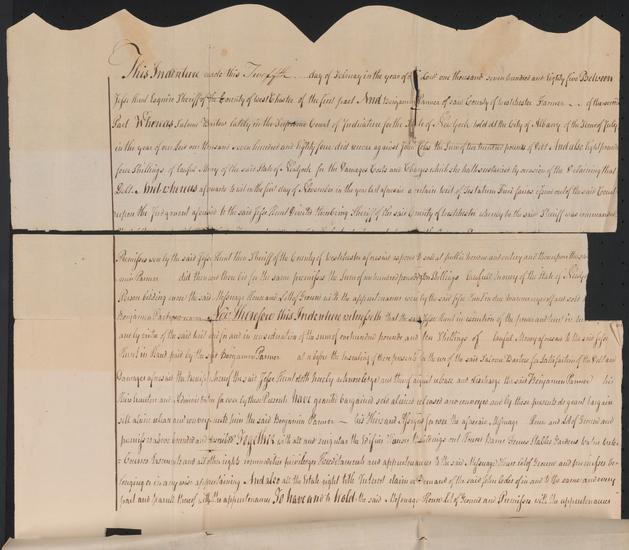 This Indenture made this Twelfth day of February in the year of our Lord one thousand seven hundred and eighty five Between
Jesse Hunt Esquire Sheriff of the County of West Chester of the first part And Benjamin Farmer of said County of Westchester Farmer of the second
Part Whereas lately in the Supreme Court of Judicature for the State of New York held at the City of Albany of the Term of July
in the year of our Lord one thousand seven hundred and eighty four did recover against John the Sum of two hundred pounds of Debt And also eight pounds
four Shillings of lawful Money of the said State of New York for the Damages Costs and Charges which she hath sustained by occasion of the Detaining that
Debt And whereas afterwards to wit on the first day of November in the year last aforesaid a certain Writ of Testatum Fieri facias issued out of the said Court
upon the Judgment aforesaid to the said Jesse Hunt Directed then being Sheriff of the said County of Westchester whereby the said Sheriff was commanded
Premisses were by the said Jesse Hunt then Sheriff of the County of Westchester aforesaid exposed to sale at public vendue and outcry and thereupon the said
Benjamin Farmer did then and there bid for the same premisses the Sum of one hundred pounds & ten Shillings lawful money of the State of New York
Person bidding more the said Messuage House and Lott of Ground with the appurtenances were by the said Jesse Hunt in due manner and sold
Benjamin Now Therefore this Indenture witnesseth that the said Jesse Hunt in execution of the power and trust in him
and by virtue of the said writ and in consideration of the sum of one hundred pounds and ten Shillings of lawful Money aforesaid to the said Jesse
Hunt in hand paid by the said Benjamin Farmer at or before the Ensealing of these presents to the use of the said for Satisfaction of the Debt and
Damages aforesaid the receipt whereof the said Jesse Hunt doth hereby acknowledge and thereof acquit release and discharge the said Benjamin Farmer his
Heirs Executors and Administrators forever by these Presents have granted bargained sold aliened released and conveyed and by these presents do grant bargain
sell aliene release and convey unto him the said Benjamin Farmer his Heirs and Assigns for ever the aforesaid Messuage House and Lot of Ground and
premisses above bounded and described Together with all and singular the Edifices Houses Buildings out Houses Barns Stables Gardens Water
Courses Easements and all other rights commodities priviledges Hereditaments and appurtenances to the said Messuage House Lot of Ground and premisses be
longing or in any wise appertaining And also all the Estate right title Interest claim or Demand of the said John of in and to the same and every
part and parcel thereof with the appurtenances To have and to hold the said Messuage House Lot of Ground and Premisses with the appurtenances